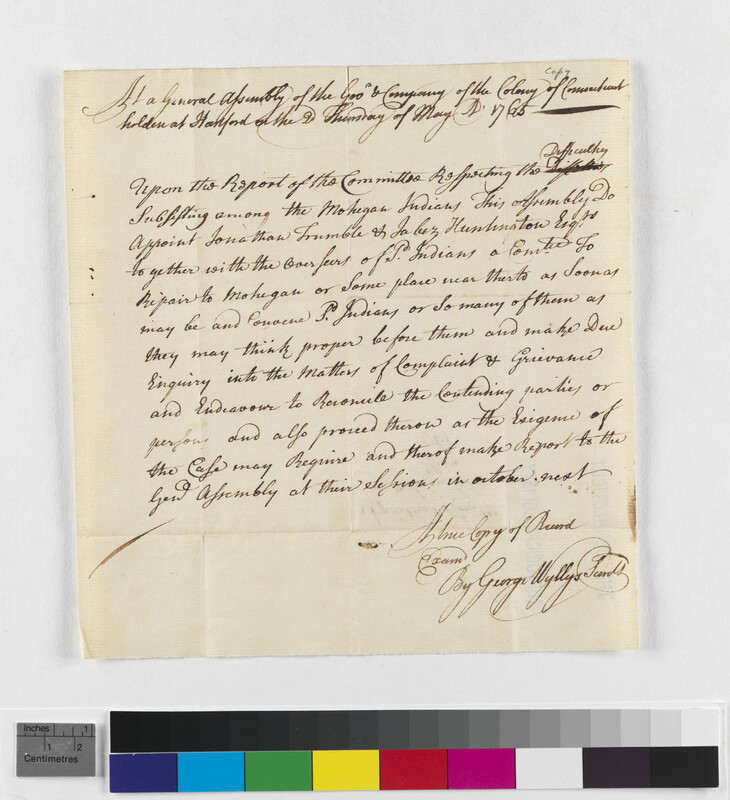 Copy
At a General Assembly of the Govr & Company of the Colony of Connecticut
holden at Hartford on the 2d Thursday of May AD 1765
Upon the Report of the Committee Respecting the Difficulties
Subsisting among the Mohegan Indians This Assembly Do
Appoint Jonathan Trumble & Jabez Huntington Esqrs
together with the Overseers of sd Indians a Comtee To
Repair to Mohegan or Some place near therto as Soon as
may be and Convene sd Indians or So many of them as
they may think proper before them and make Due
Enquiry into the Matters of Complaint & Grievance
and Endeavour to Reconcile the Contending parties or
persons and also proceed theron as the Exigence of
the Case may Require and therof make Report to the
Genll Assembly at their Sessions in october next
A true Copy of Record
Examd
By George Wyllys Secrety
Inches 1
1 2
Centimetres